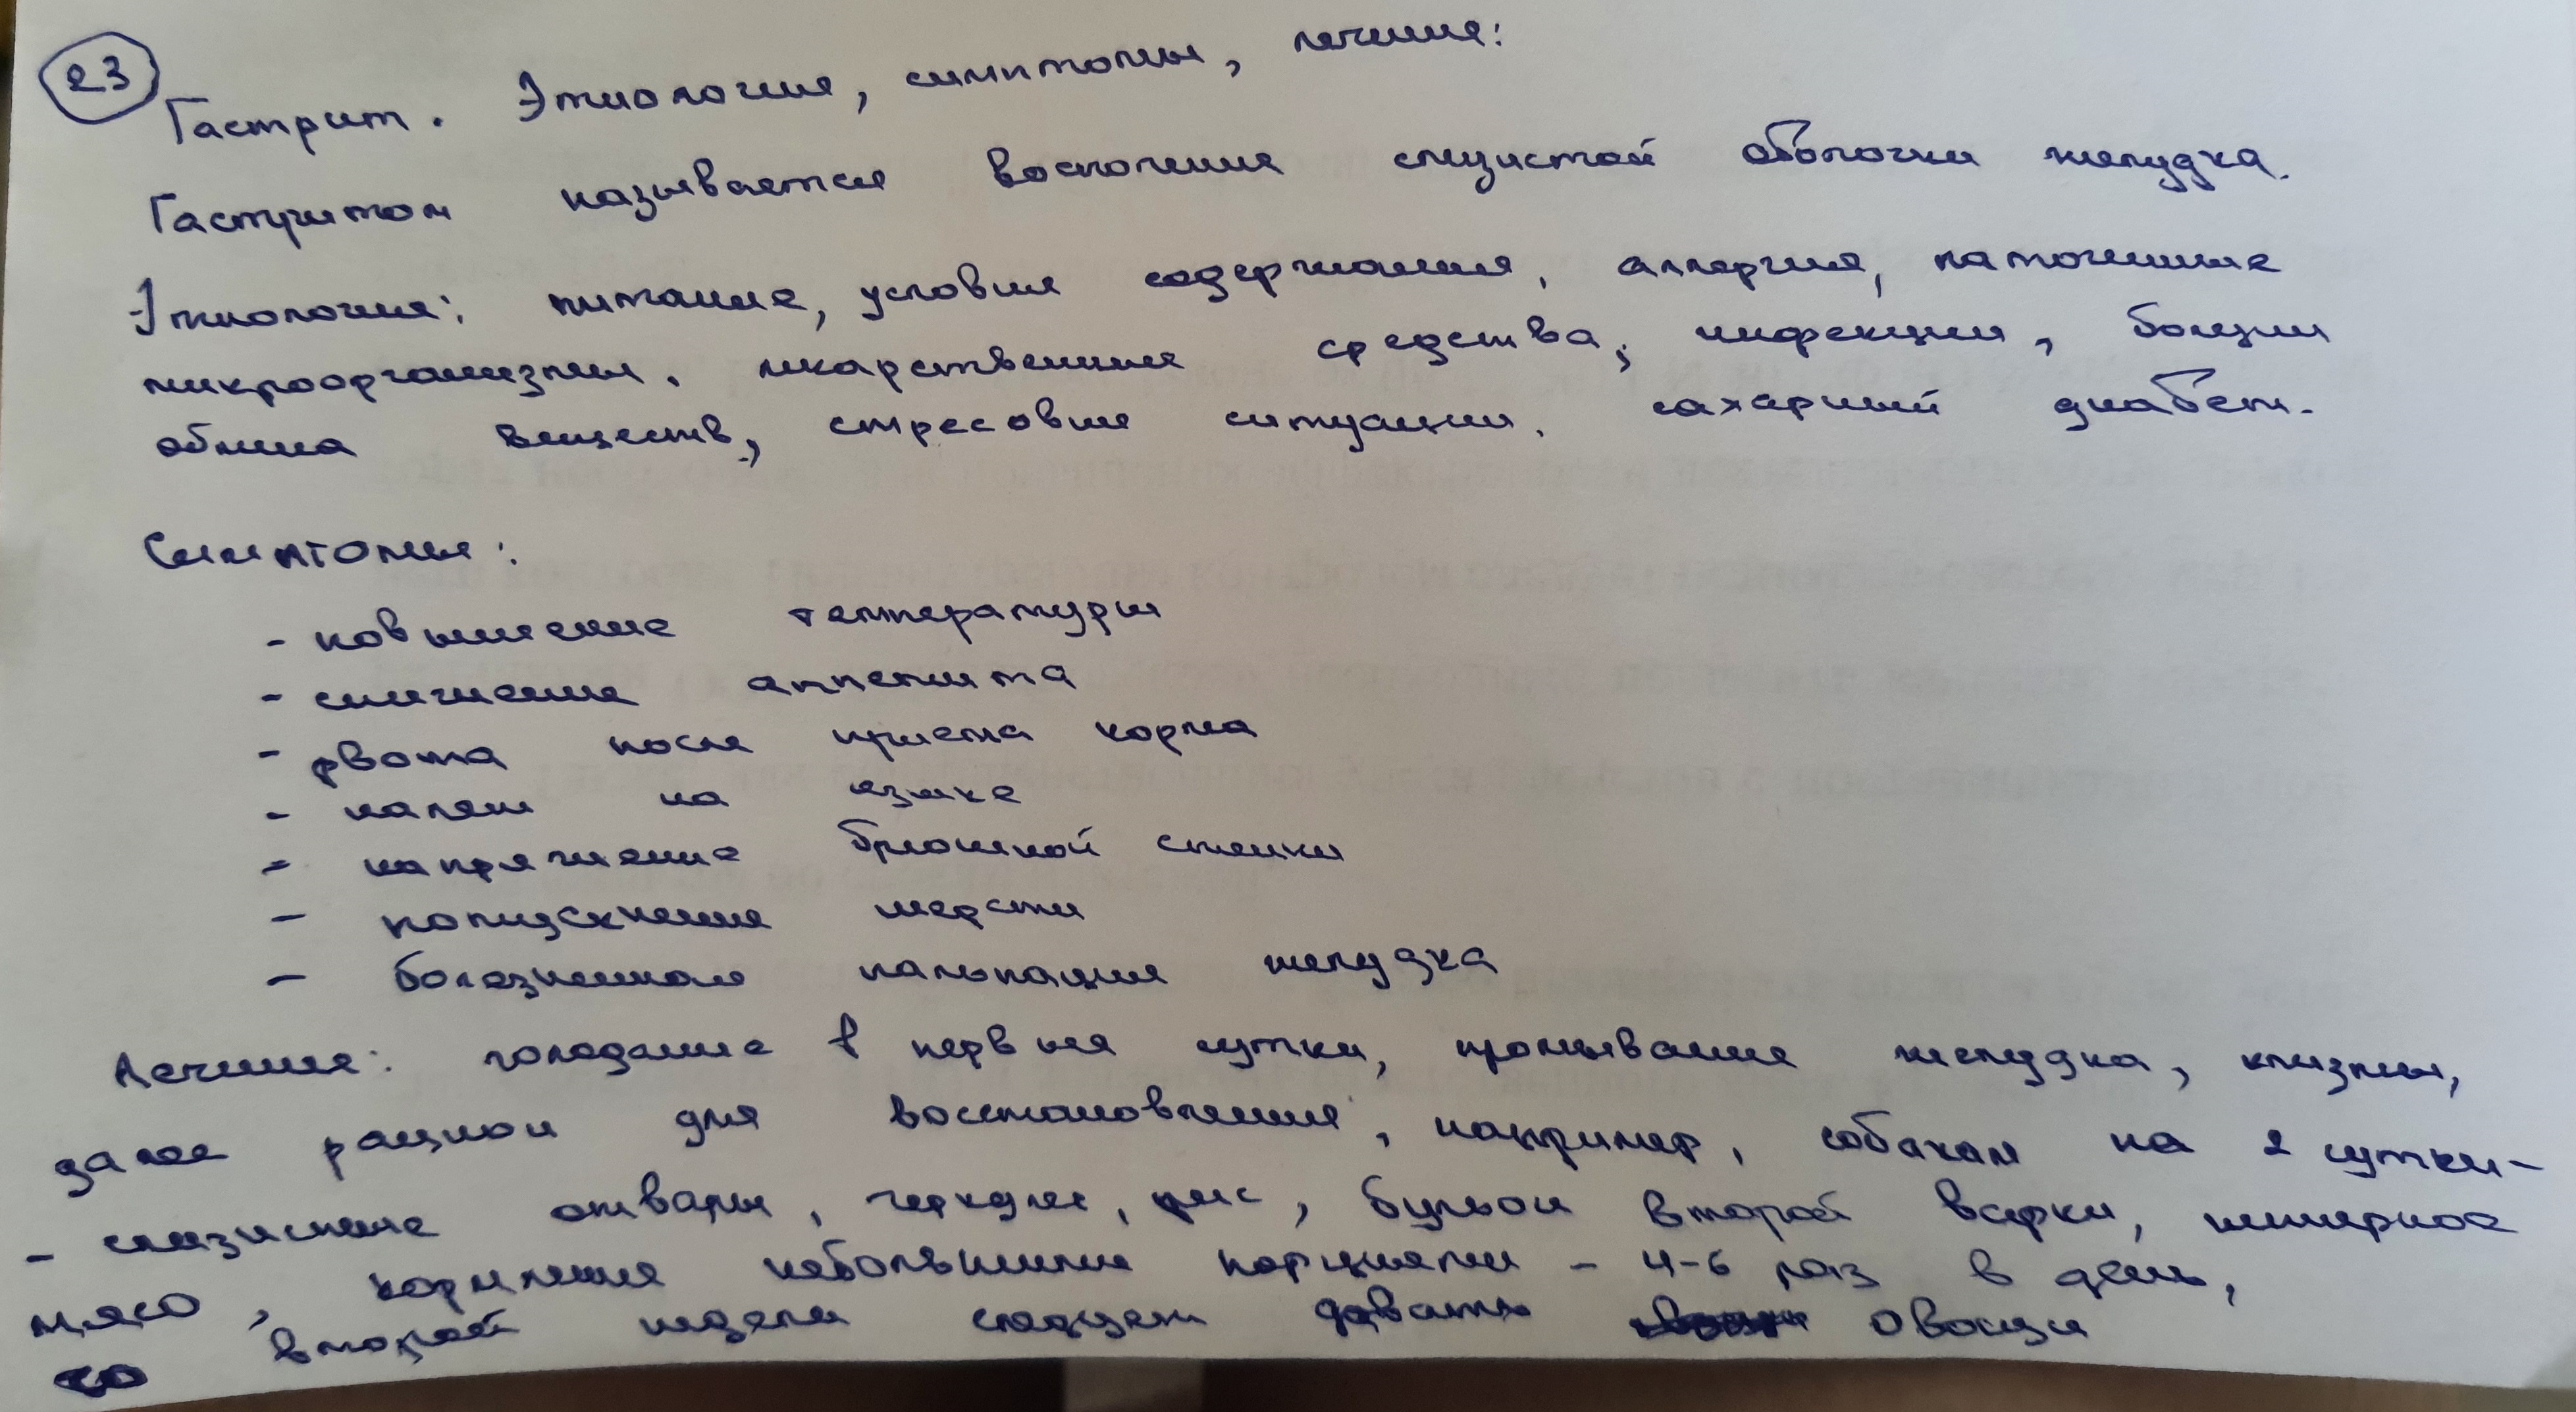 23
Гастрит. Этиология, симптомы, лечение:
Гастритом называется воспаление слизистой оболочки желудка.
Этиология: питание, условия содержания, аллергия, патогенные
микроорганизмы, лекарственные средства, инфекции, болезни
обмена веществ, стрессовые ситуации, сахарный диабет.
Симптомы:
- повышение температуры
- снижение аппетита
- рвота после приема корма
- налет на языке
- напряжение брюшной стенки
- потускнение шерсти
- болезненная пальпация желудка
Лечение: голодание в первые сутки, промывание желудка, клизмы,
далее рацион для восстановления, например, собакам на 2 сутки -
- слизистые отвары, геркулес, рис, бульон второй варки, нежирное
мясо, кормление небольшими порциями - 4-6 раз в день,
со второй недели следует давать овощи